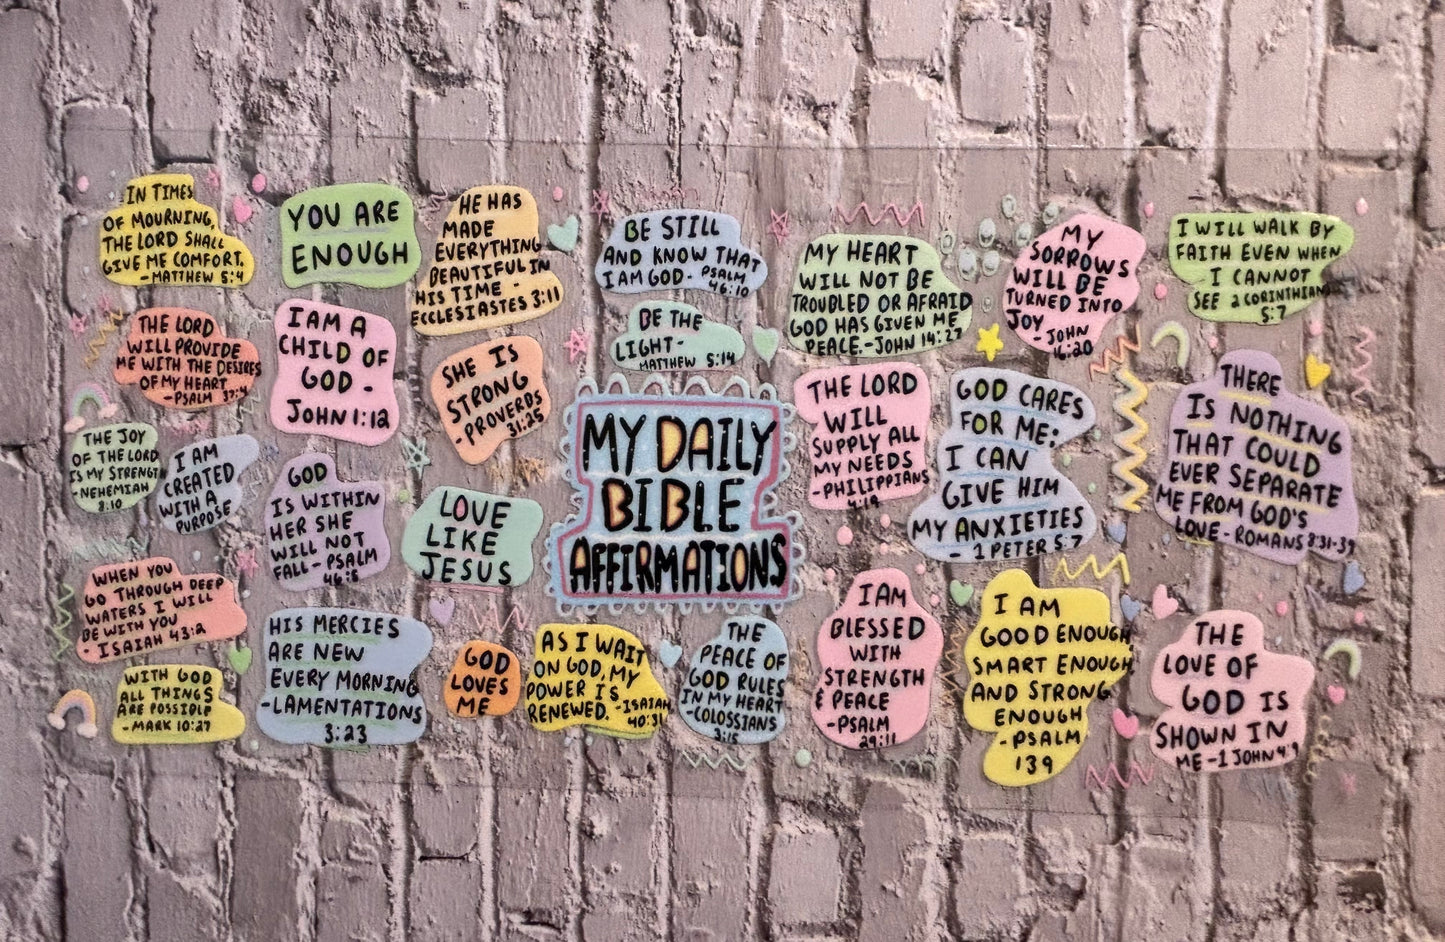 IN TIMES
OF MOURNING,
THE LORD SHALL
GIVE ME COMFORT.
-MATTHEW 5:4
YOU ARE
ENOUGH
HE HAS
MADE
EVERYTHING
BEAUTIFUL IN
HIS TIME -
ECCLESIASTES 3:11
BE STILL
AND KNOW THAT
I AM GOD - PSALM
46:10
MY HEART
WILL NOT BE
TROUBLED OR AFRAID
GOD HAS GIVEN ME
PEACE.-JOHN 14:27
MY
SORROWS
WILL BE
TURNED INTO
JOY - JOHN
16:20
I WILL WALK BY
FAITH EVEN WHEN
I CANNOT
SEE 2 CORINTHIANS
5:7
THE LORD
WILL PROVIDE
ME WITH THE DESIRES
OF MY HEART
-PSALM 37:4
I AM A
CHILD OF
GOD -
JOHN 1:12
SHE IS
STRONG
- PROVERBS
31:25
BE THE
LIGHT-
MATTHEW 5:14
THE LORD
WILL
SUPPLY ALL
MY NEEDS
-PHILIPPIANS
4:19
GOD CARES
FOR ME:
I CAN
GIVE HIM
MY ANXIETIES
- 1 PETER 5:7
THERE
IS NOTHING
THAT COULD
EVER SEPARATE
ME FROM GOD'S
LOVE - ROMANS 8:31-39
THE JOY
OF THE LORD
IS MY STRENGT
- NEHEMIAH
8:10
I AM
CREATED
WITH A
PURPOSE
GOD
IS WITHIN
HER SHE
WILL NOT
FALL - PSALM
46:5
LOVE
LIKE
JESUS
MY DAILY
BIBLE
AFFIRMATIONS
WHEN YOU
GO THROUGH DEEP
WATERS I WILL
BE WITH YOU
- ISAIAH 43:2
HIS MERCIES
ARE NEW
EVERY MORNING
-LAMENTATIONS
3:23
GOD
LOVES
ME
AS I WAIT
ON GOD, MY
POWER IS
RENEWED. -ISAIAH
40:31
THE
PEACE OF
GOD RULES
IN MY HEART
-COLOSSIANS
3:15
I AM
BLESSED
WITH
STRENGTH
& PEACE
-PSALM
29:11
I AM
GOOD ENOUGH
SMART ENOUGH
AND STRONG
ENOUGH
- PSALM
139
THE
LOVE OF
GOD IS
SHOWN IN
ME - 1 JOHN 4:9
WITH GOD
ALL THINGS
ARE POSSIBLE
- MARK 10:27